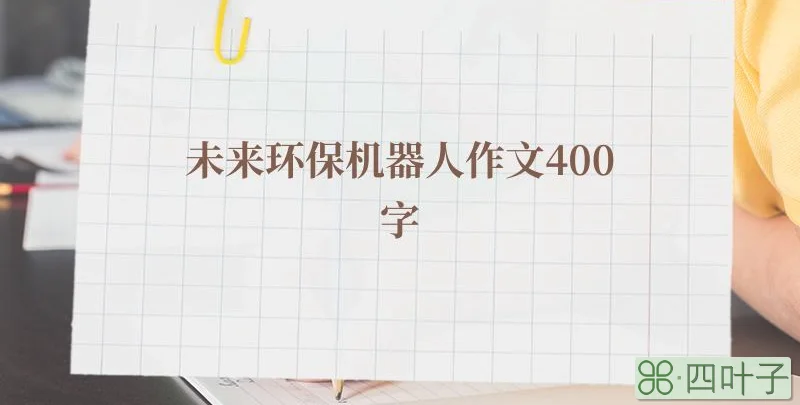 未来环保机器人作文400
字
四叶子